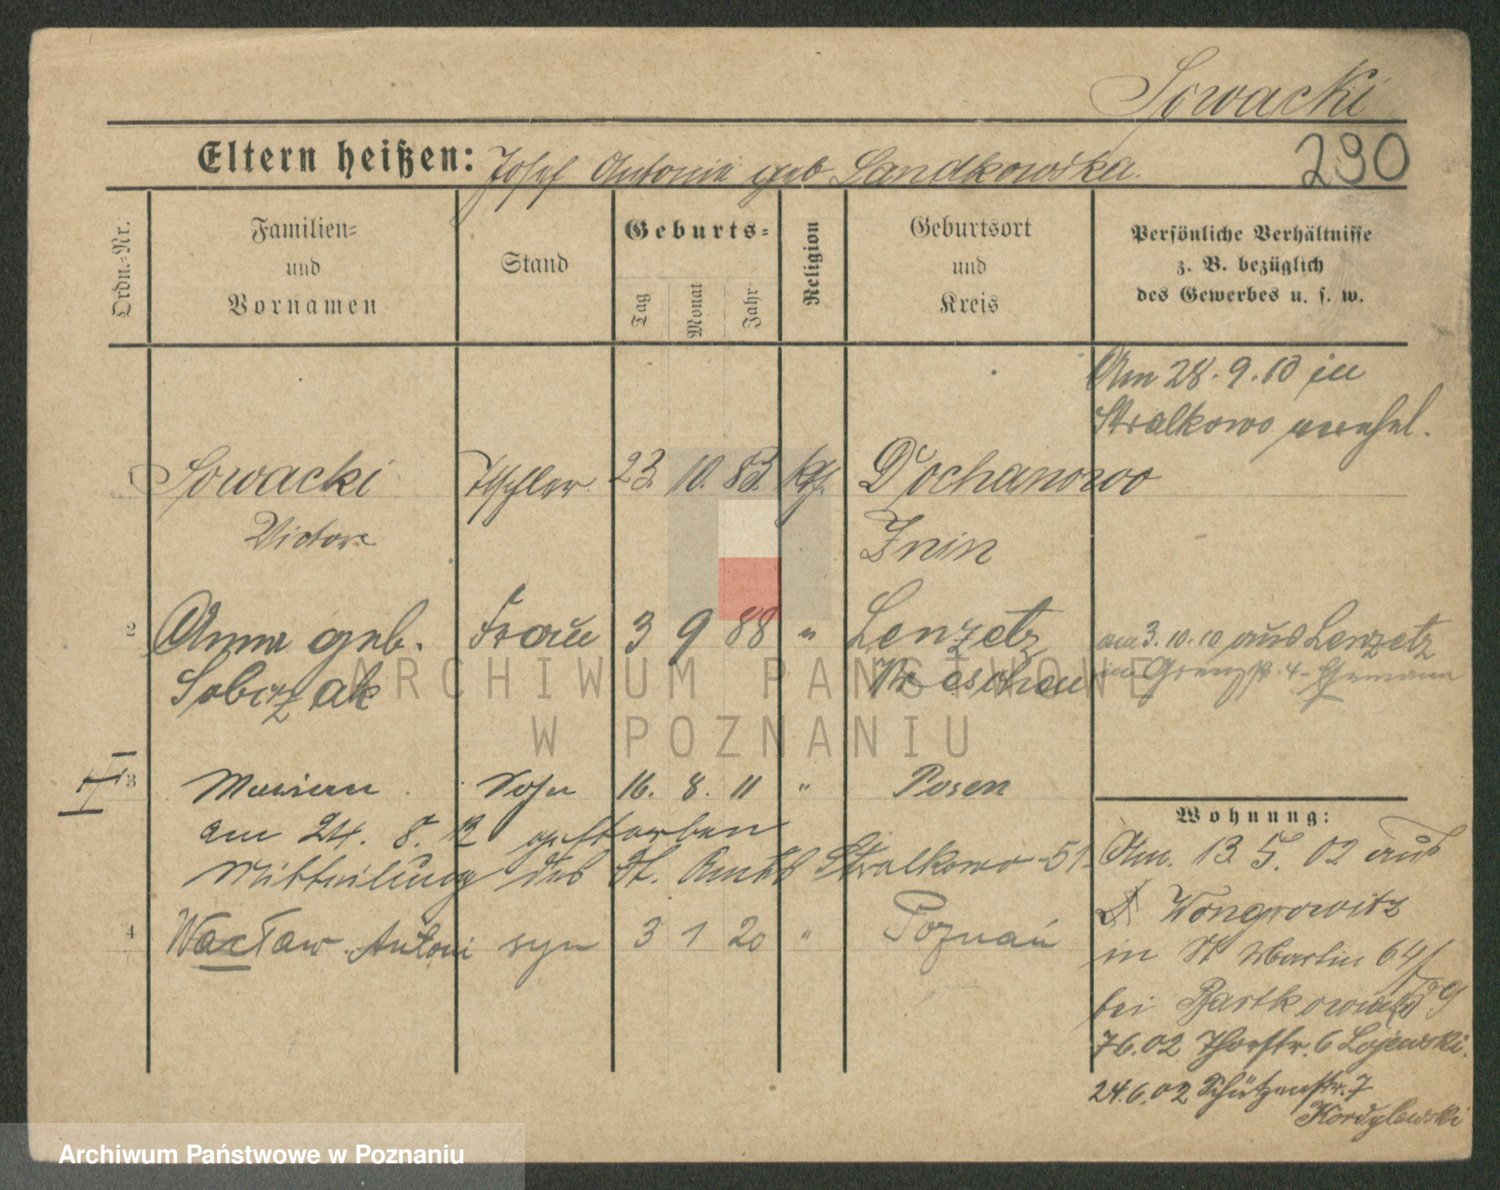 Sowacki
Eltern heißen: Josef Antonie geb Sandkowska.
290
Ordn.-Nr.
Familien-
und
Vornamen
Stand
Geburts-
Tag
Monat
Jahr
Religion
Geburtsort
und
Kreis
Persönliche Verhältnisse
z. B. bezüglich
des Gewerbes u. s. w.
Am 28.9.10 in
Stralkowo verehel.
Sowacki Tischler 23. 10. 83. kth. Dochanowo
Victor Znin
2 Anna geb. Frau 3 9 88 " Lenzetz
Sobczak Wreschen
am 3.10.10 aus Lenzetz
in Grenzstr. 4 Ehemann
3 Marian Sohn 16. 8. 11 " Posen
am 24. 8. 12 gestorben
Mitteilung des St. Amts Stralkowo 51
4 Wacław Antoni syn 3 1 20 " Poznań
Wohnung:
Am. 13 5. 02 aus
Wongrowitz
in St Martin 64/
bei Bartkowiak 79
7 6. 02 Thorstr. 6 Lojewski.
24.6.02 Schützenstr. 7
Kordylewski
ARCHIWUM PAŃSTWOWE
W POZNANIU
Archiwum Państwowe w Poznaniu